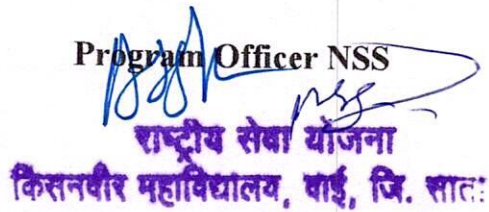 Program Officer NSS
राष्ट्रीय सेवा योजना
किसनवीर महाविद्यालय, वाई, जि. सातः